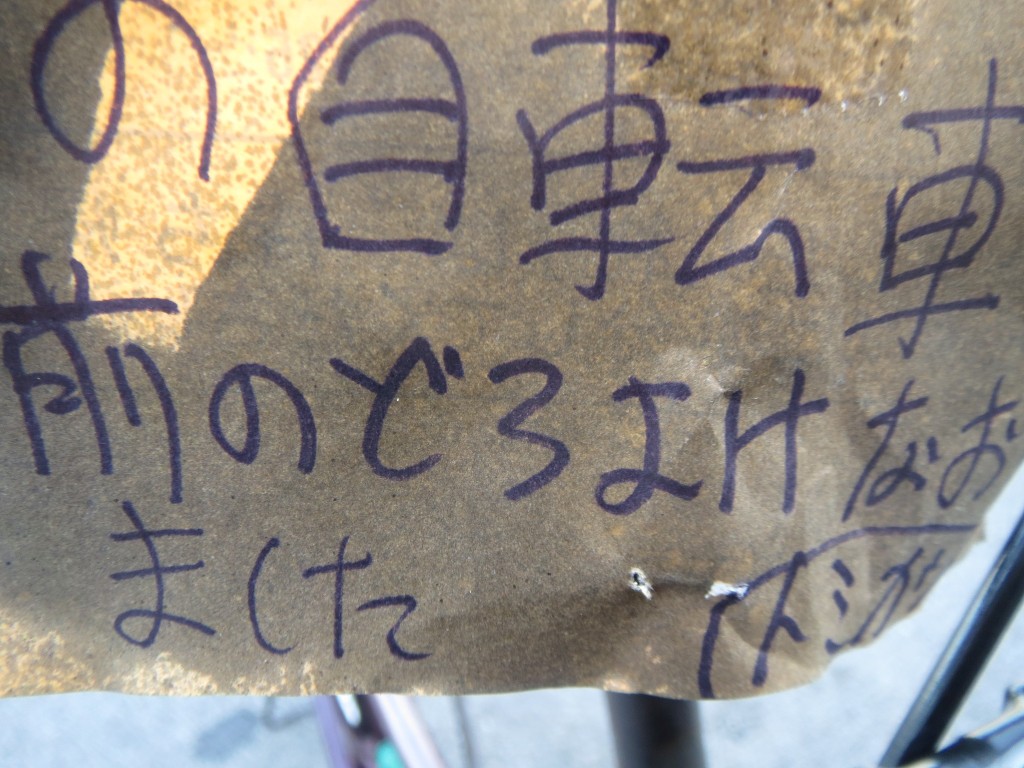 の自転車
前のどろよけなお
ました